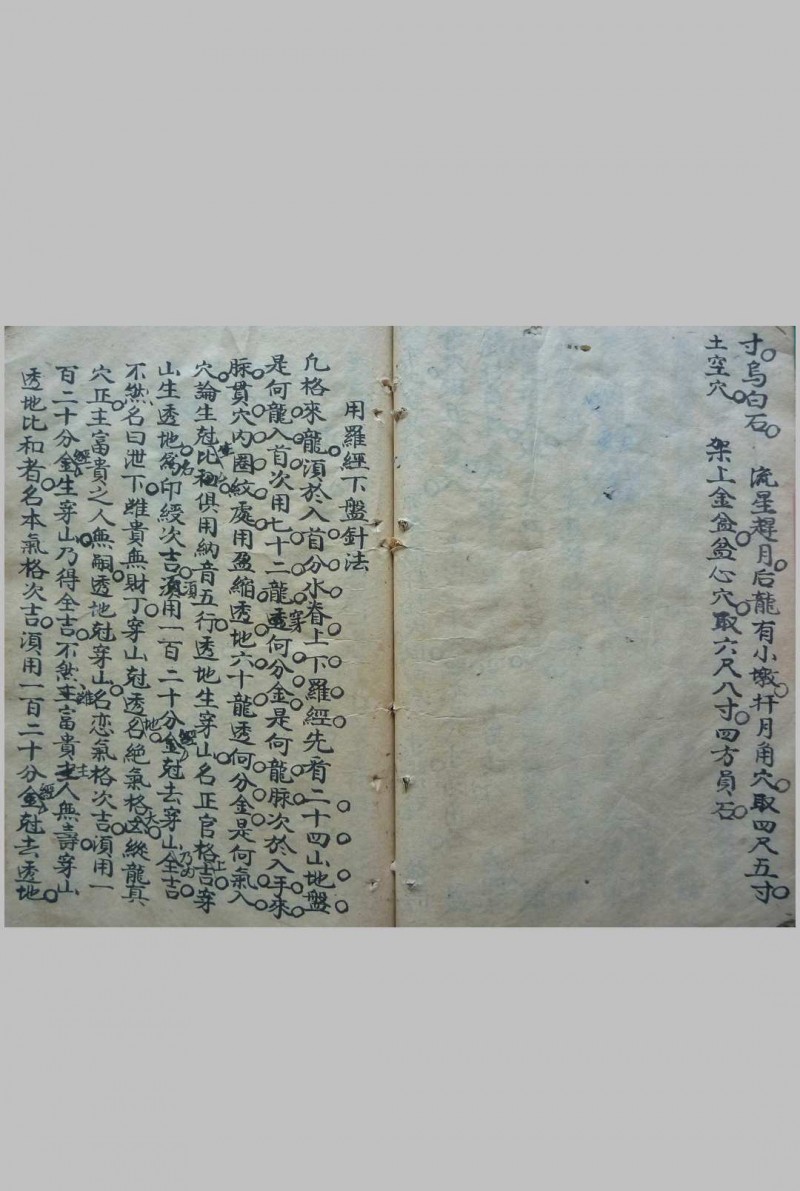 寸烏白石　流星趕月后龍有小墩扦月角穴取四尺五寸
土空穴　架上金盆盆心穴取六尺八寸四方員石
用羅經下盤針法
凡格來龍須於入首分水脊上下羅經先看二十四山地盤
是何龍入首次用七十二龍穿何分金是何龍脉次於入手來
脉貫穴內圈紋處用盈縮透地六十龍透何分金是何氣入
穴論生尅比和俱用納音五行透地生穿山名正官格上吉穿
山生透地名為印綬次吉須用一百二十分經尅去穿山乃為全吉
不然名曰泄下雖貴無財丁穿山尅透地名絕氣格大凶縱龍真
穴正主富貴之人無嗣透地尅穿山名恋氣格次吉須用一
百二十分經生穿山乃得全吉不然雖富貴主人無壽穿山
透地比和者名本氣格次吉須用一百二十分經尅去透地